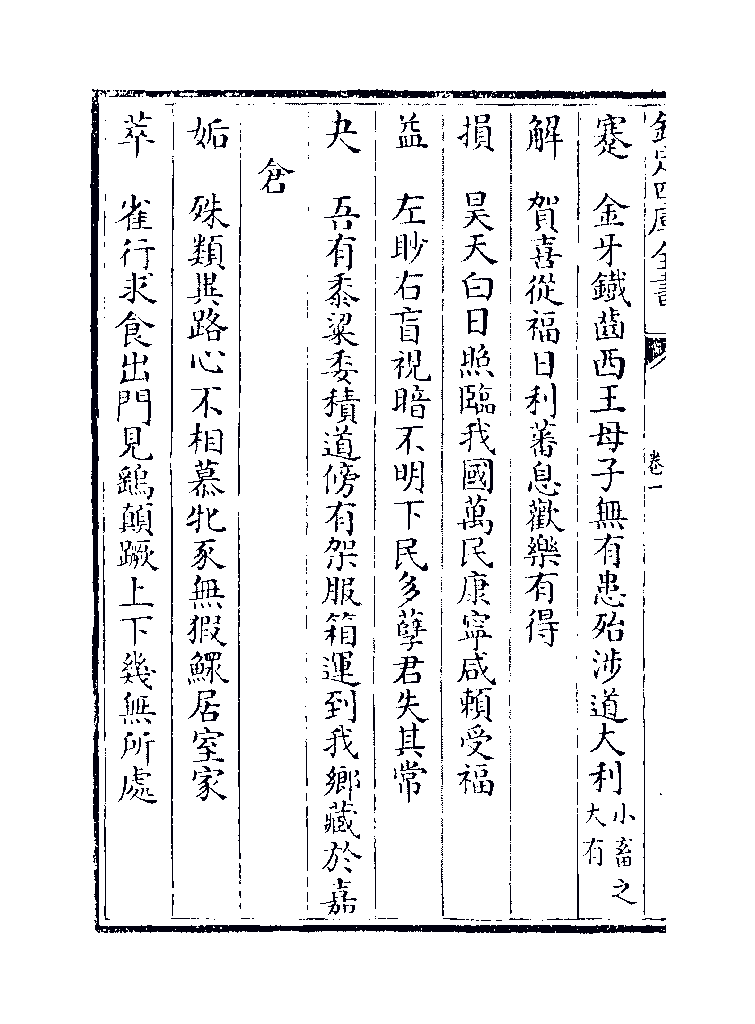 欽定四庫全書
卷一
蹇　金牙鐵齒西王母子無有患殆涉道大利小畜之大有
解　賀喜從福日利蕃息歡樂有得
損　昊天白日照臨我國萬民康寧咸賴受福
益　左眇右盲視暗不明下民多孽君失其常
夬　吾有黍粱委積道傍有架服箱運到我鄉藏於嘉
倉
姤　殊類異路心不相慕牝豕無猳鰥居室家
萃　雀行求食出門見鷂顛蹶上下幾無所處